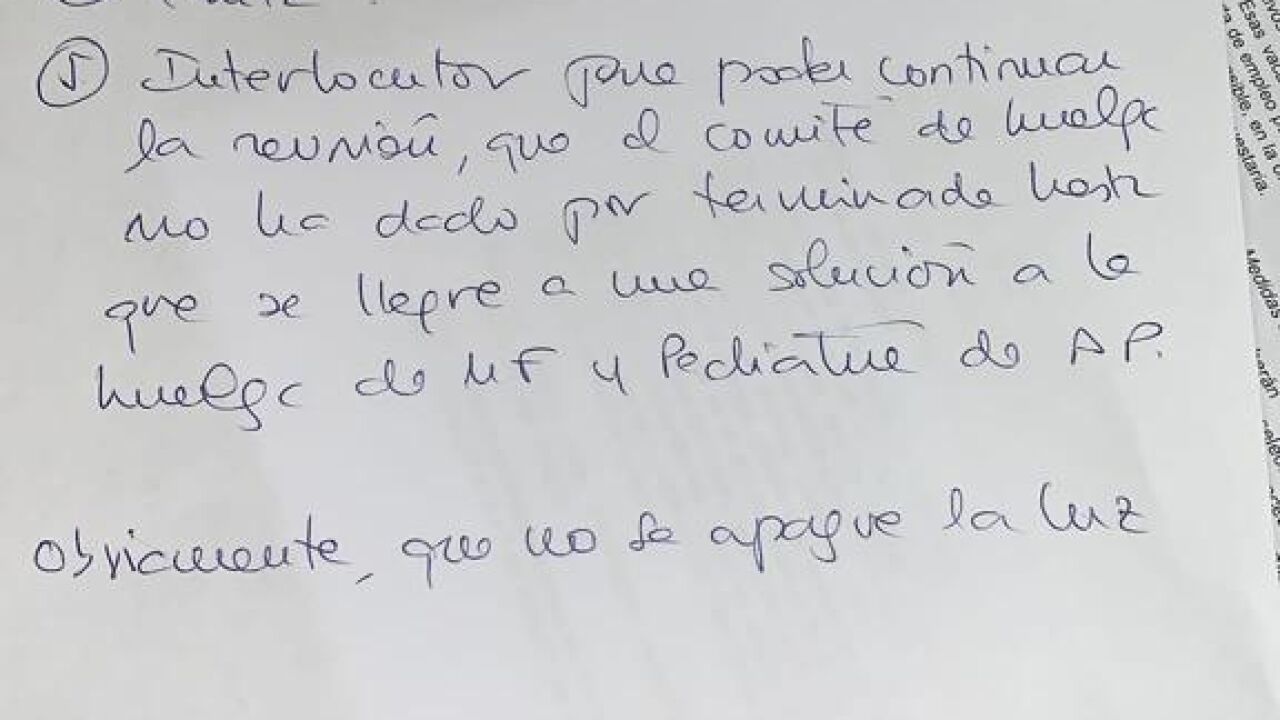 ⑤ Interlocutor para poder continuar
la reunión, que el comité de huelga
no ha dado por terminada hasta
que se llegue a una solución a la
huelga de MF y Pediatría de AP.
Obviamente, que no se apague la luz
Esas vac
de empleo p
ible, en la
estaría.
Medidas